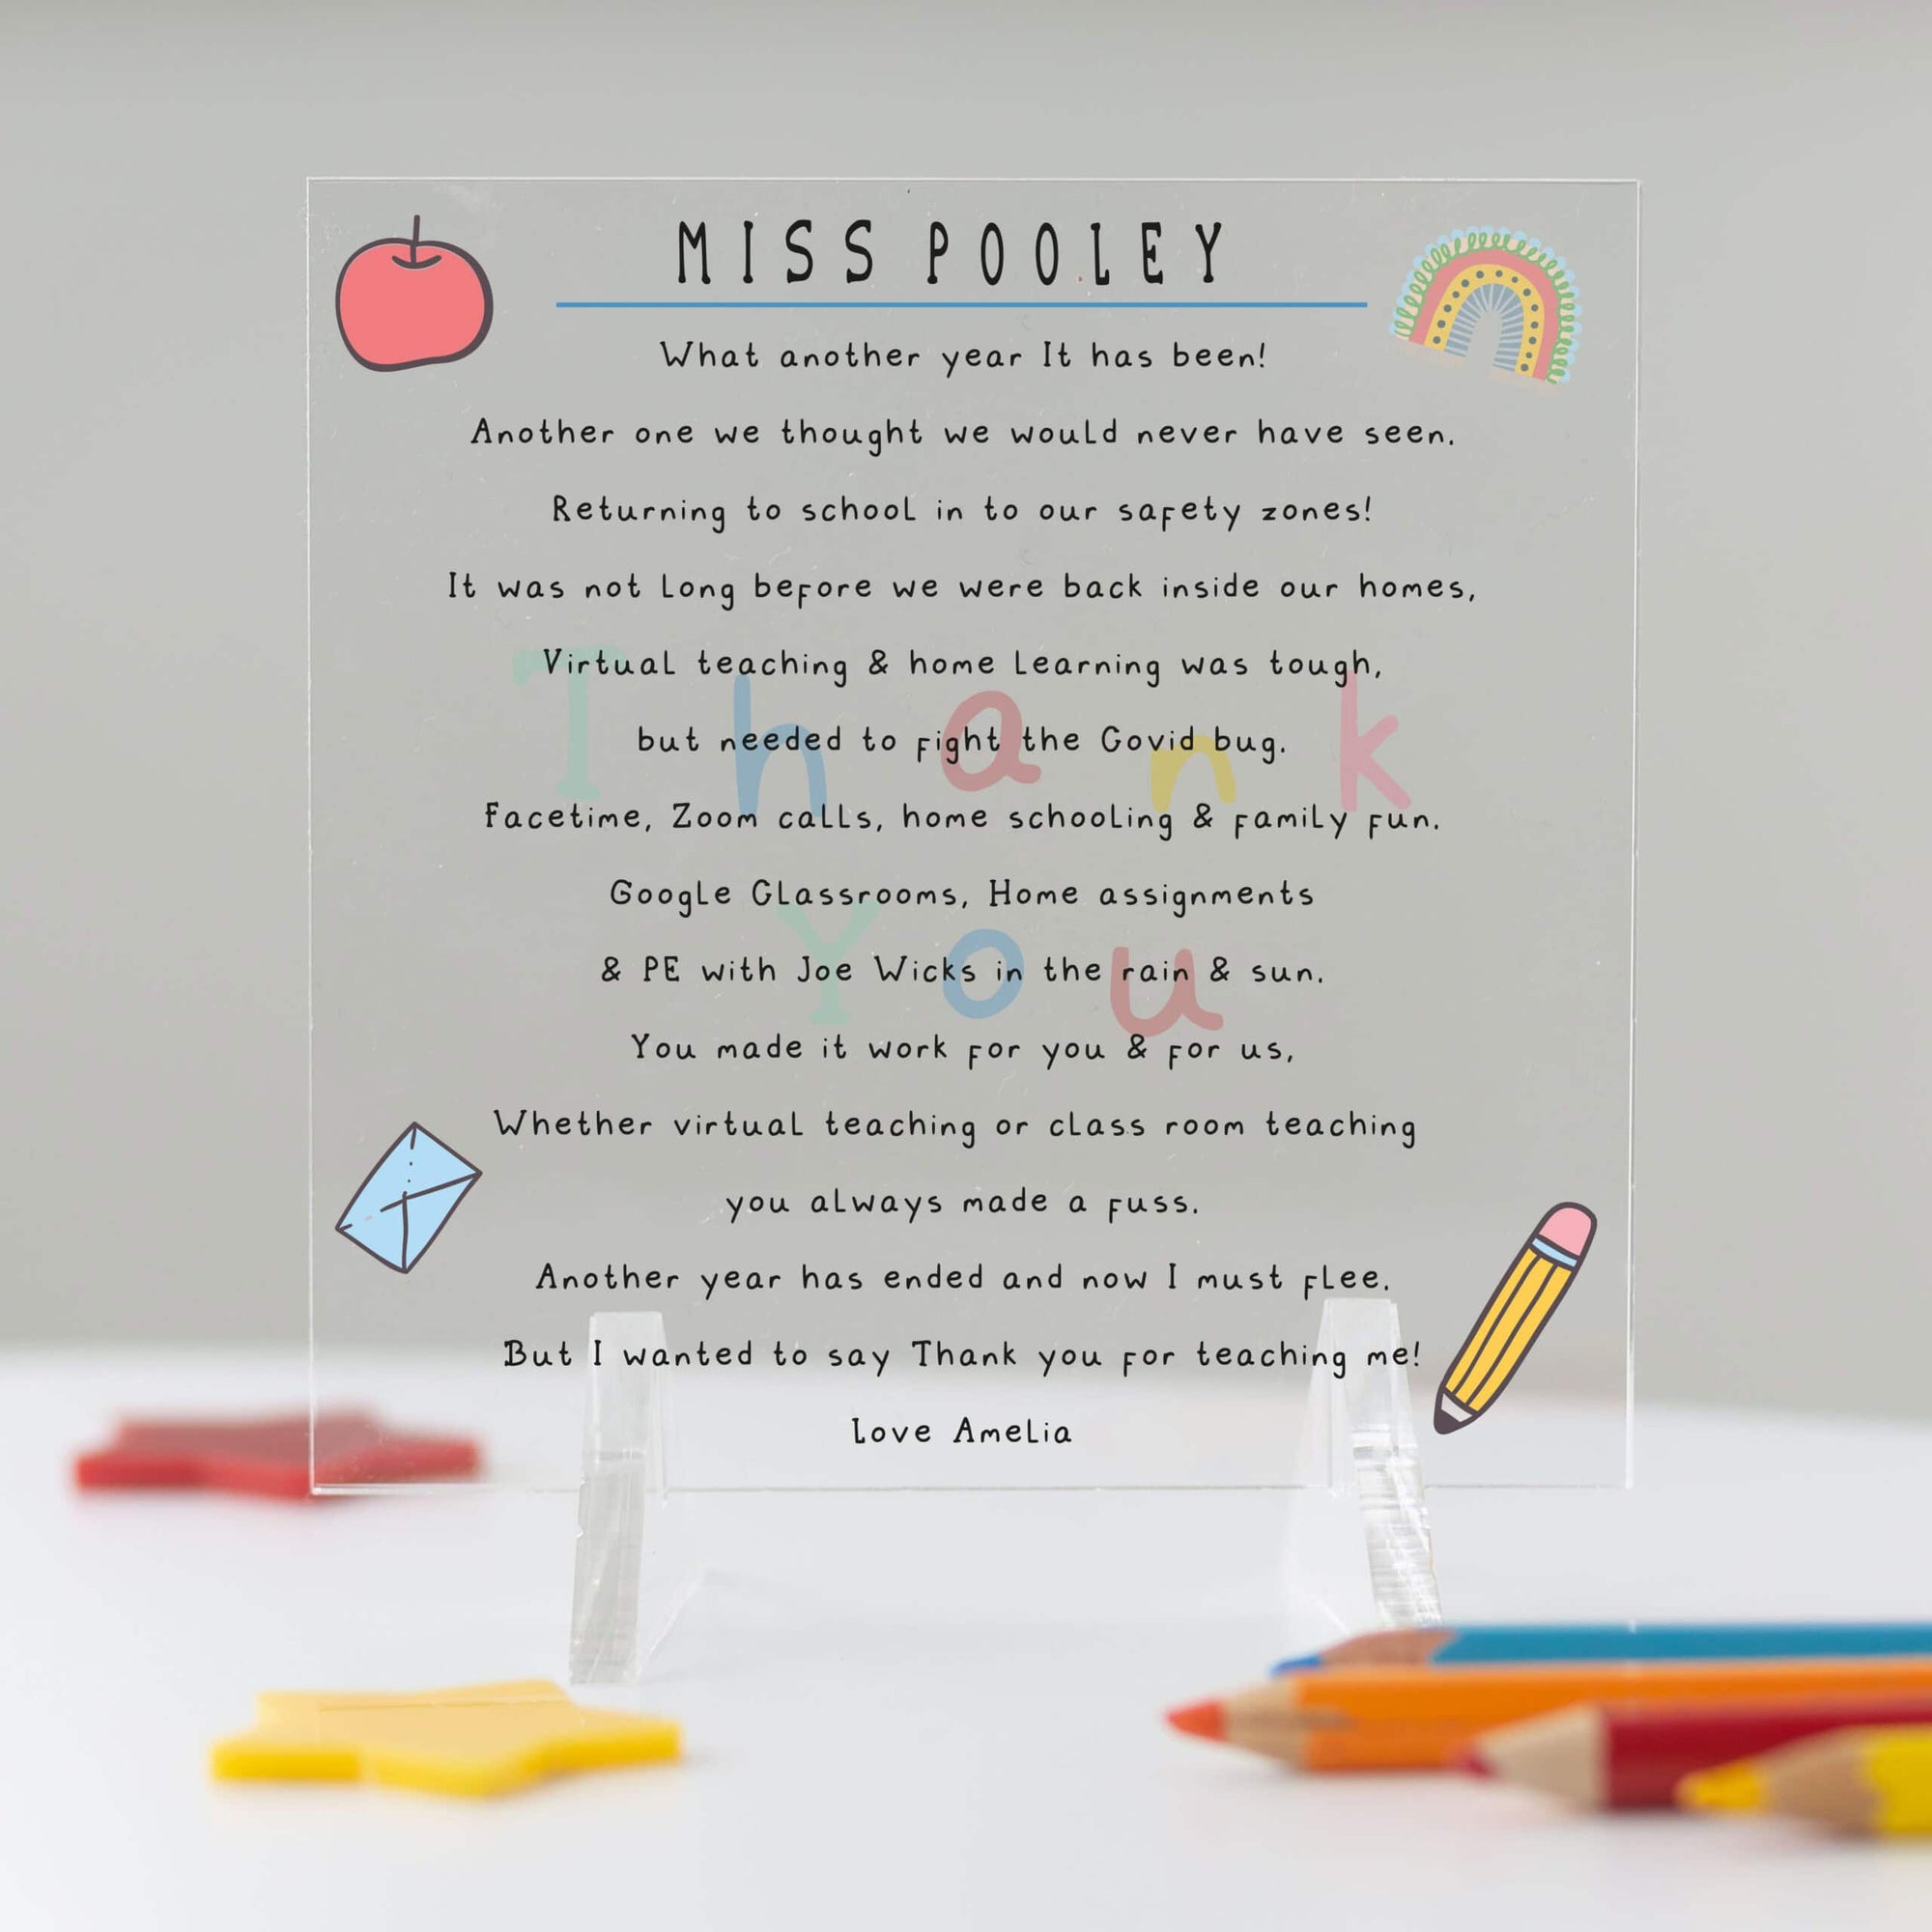 MISS POOLEY
What another year It has been!
Another one we thought we would never have seen.
Returning to school in to our safety zones!
It was not long before we were back inside our homes,
Virtual teaching & home learning was tough,
but needed to fight the Covid bug.
Facetime, Zoom calls, home schooling & family fun.
Google Classrooms, Home assignments
& PE with Joe Wicks in the rain & sun.
You made it work for you & for us,
Whether virtual teaching or class room teaching
you always made a fuss.
Another year has ended and now I must flee.
But I wanted to say Thank you for teaching me!
Love Amelia
Thank
You